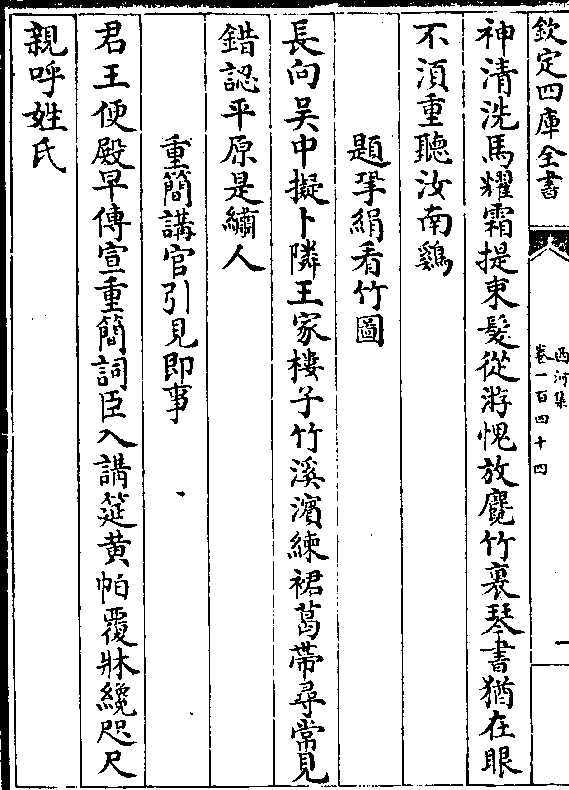 欽定四庫全書
西河集
卷一百四十四
一
神清洗馬耀霜提束髮從游愧放麑竹裏琴書猶在眼
不湏重聽汝南鷄
題挐絹看竹圖
長向吴中擬卜隣王家樓子竹溪濵練裙葛帶尋常見
錯認平原是繡人
重簡講官引見即事
君王便殿早傳宣重簡詞臣入講筵黄帕覆牀纔咫尺
親呼姓氏